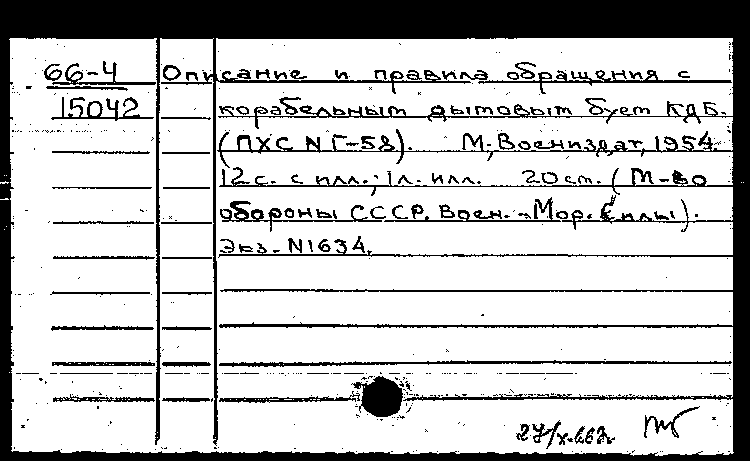 66-4
15042
Описание и правила обращения с
корабельным дымовым буем КДБ.
(ПХС N Г-58). М., Воениздат, 1954.
12 с. с илл.; 1 л. илл. 20 cm. (М-во
обороны СССР. Воен.-Мор. Силы).
Экз. N1634.
27/X-66г.